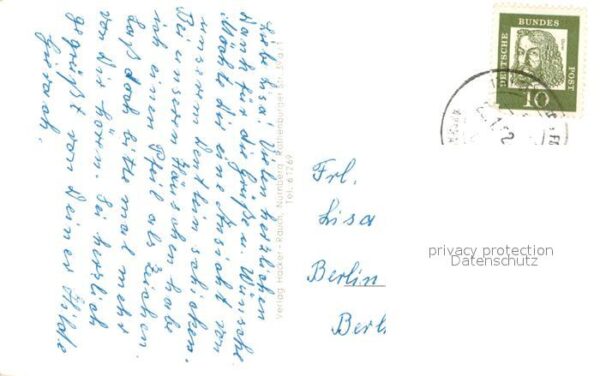 Liebe Lisa! Vielen herzlichen
Dank für die Grüße u. Wünsche
Möchte dir eine Ansicht von
unserem Dörflein schicken.
Bei unserem Häuschen habe
ich einen Pfeil als Zeichen.
Laß doch bitte mal mehr
von dir hören. Sei herzlich
gegrüßt von Deiner Hilde
Verlag Hauser-Rauch, Nürnberg, Rothenburger Str.
Tel. 61269
DEUTSCHE BUNDES POST
10
Frl.
Lisa
Berlin
Berl
privacy protection
Datenschutz